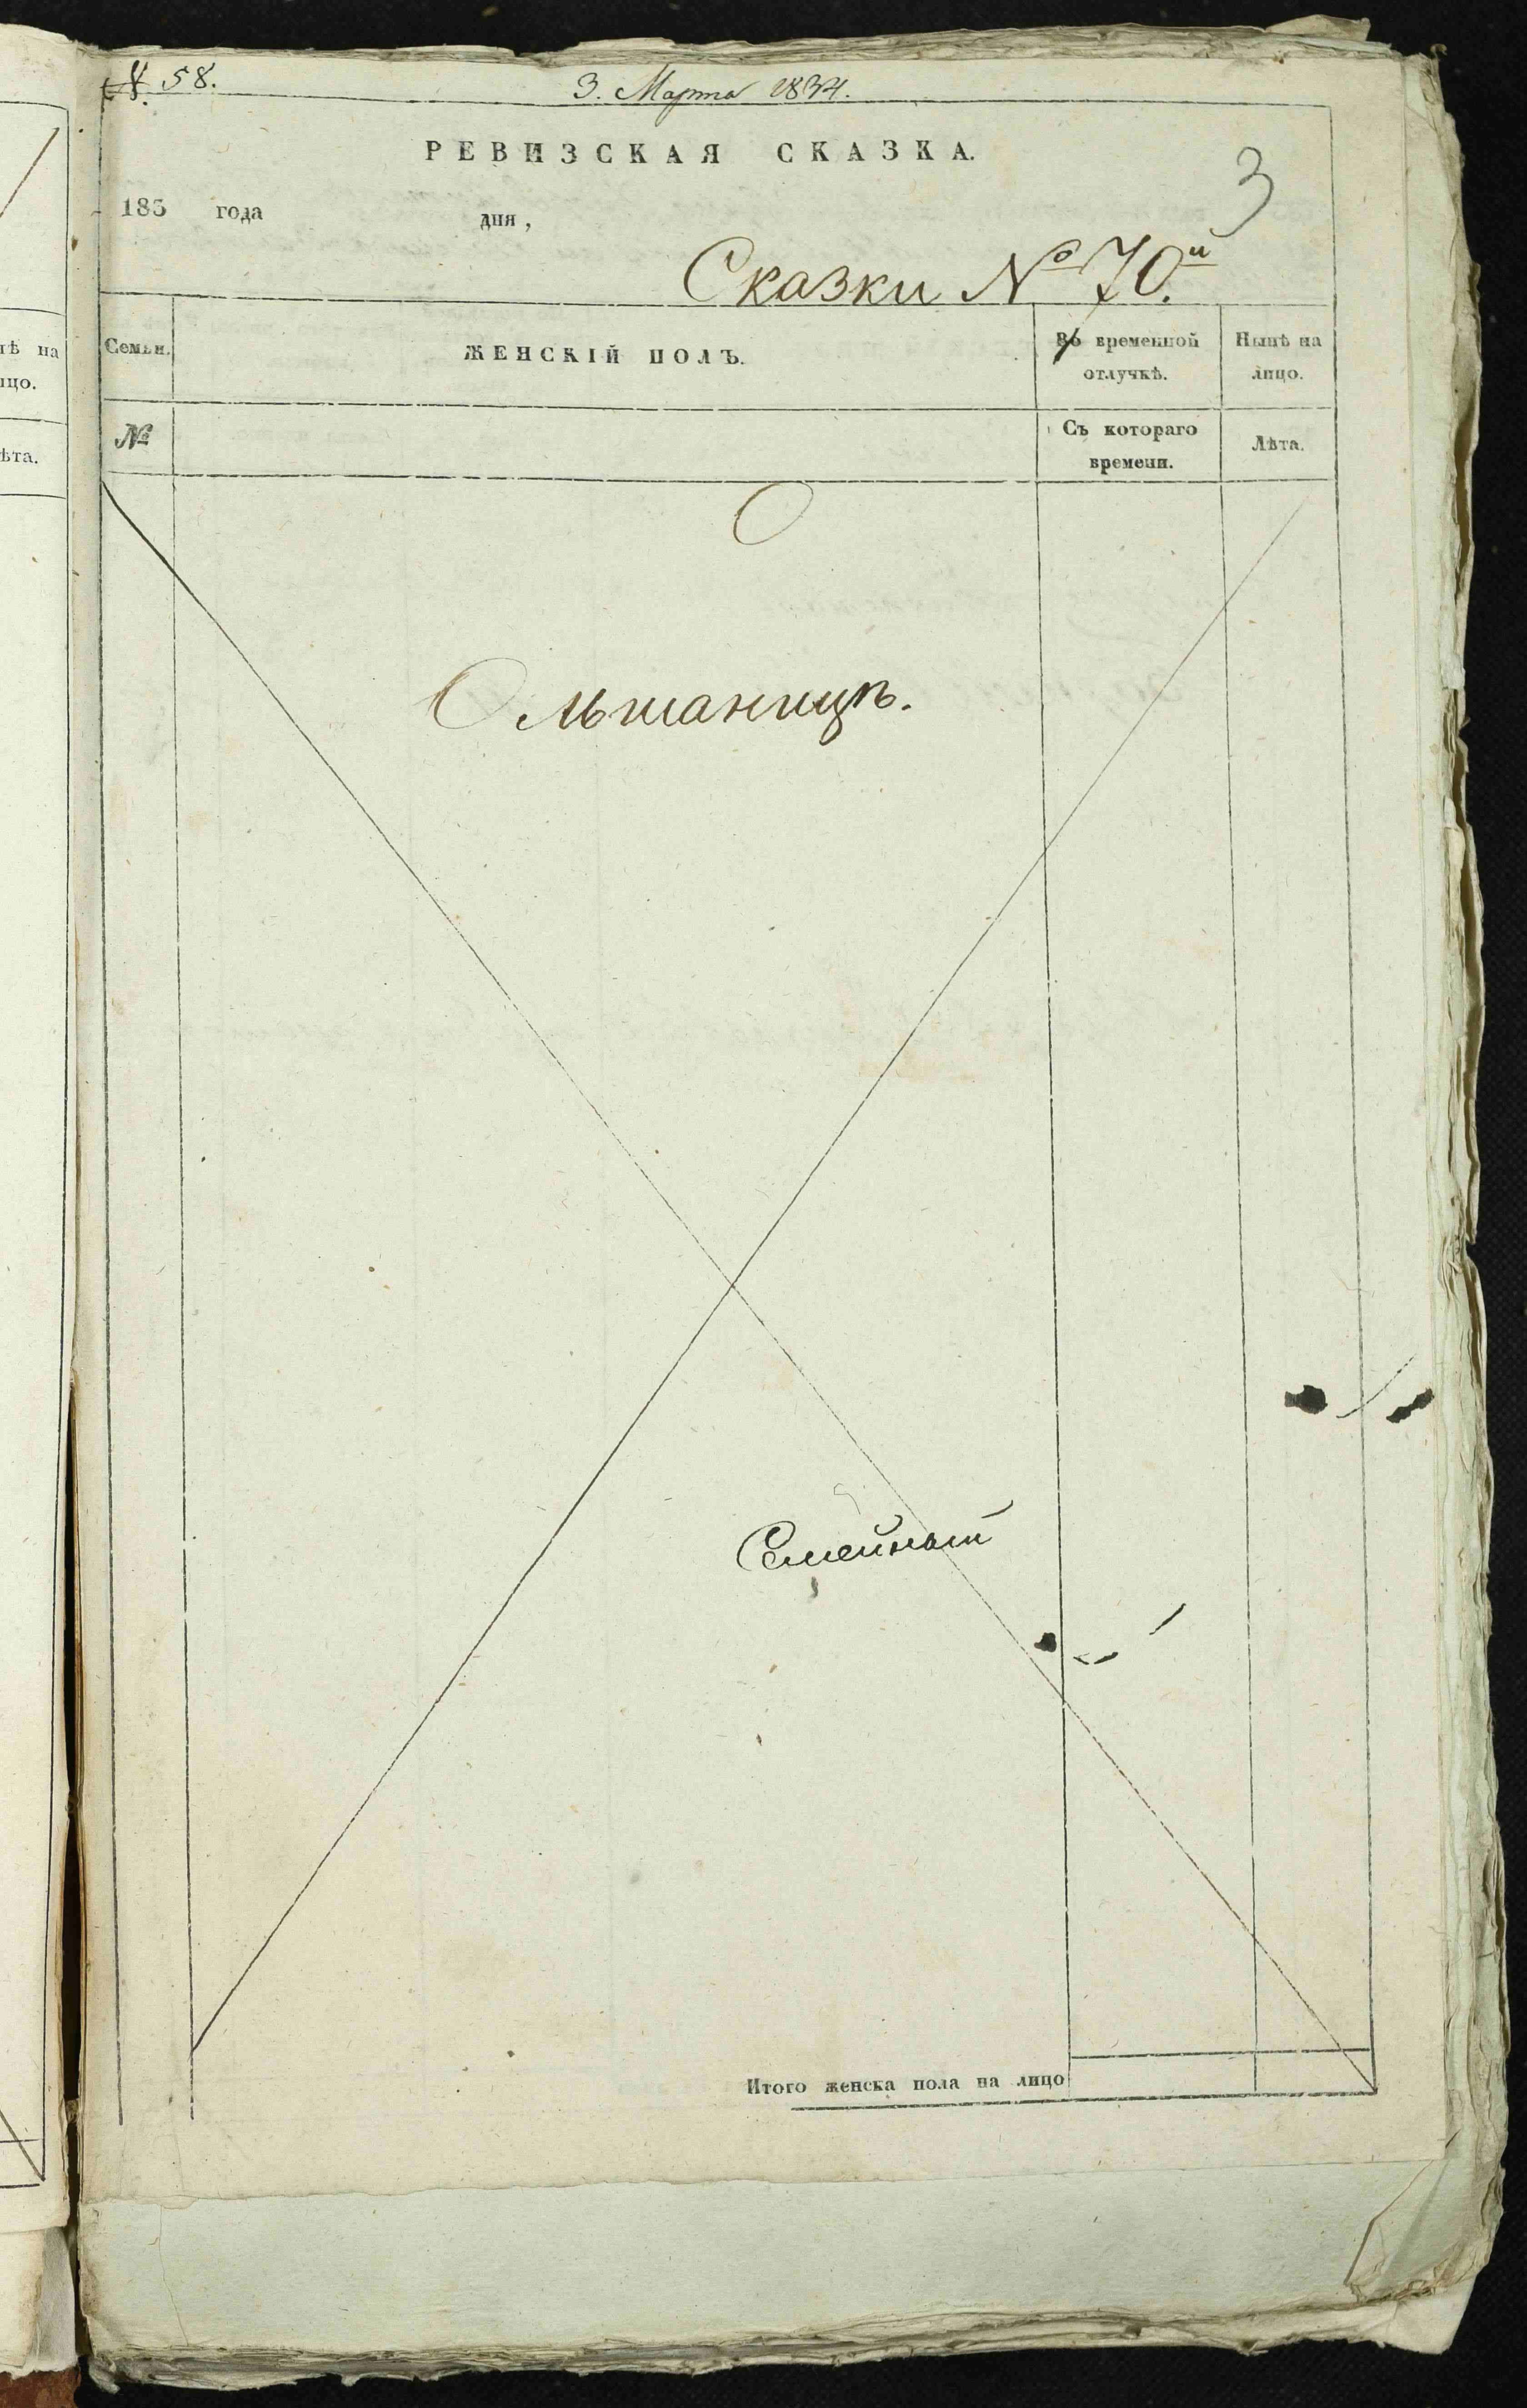 № 58. 3. Марта 1834.
РЕВИЗСКАЯ СКАЗКА.
3
183 года дня ,
Сказки № 70.й
Семьи. ЖЕНСКІЙ ПОЛЪ. Въ временной отлучкѣ. Нынѣ на лицо.
№ Съ котораго времени. Лѣта.
О
Ольшаницѣ.
Семейный
Итого женска пола на лицо
на
цо.
ѣта.